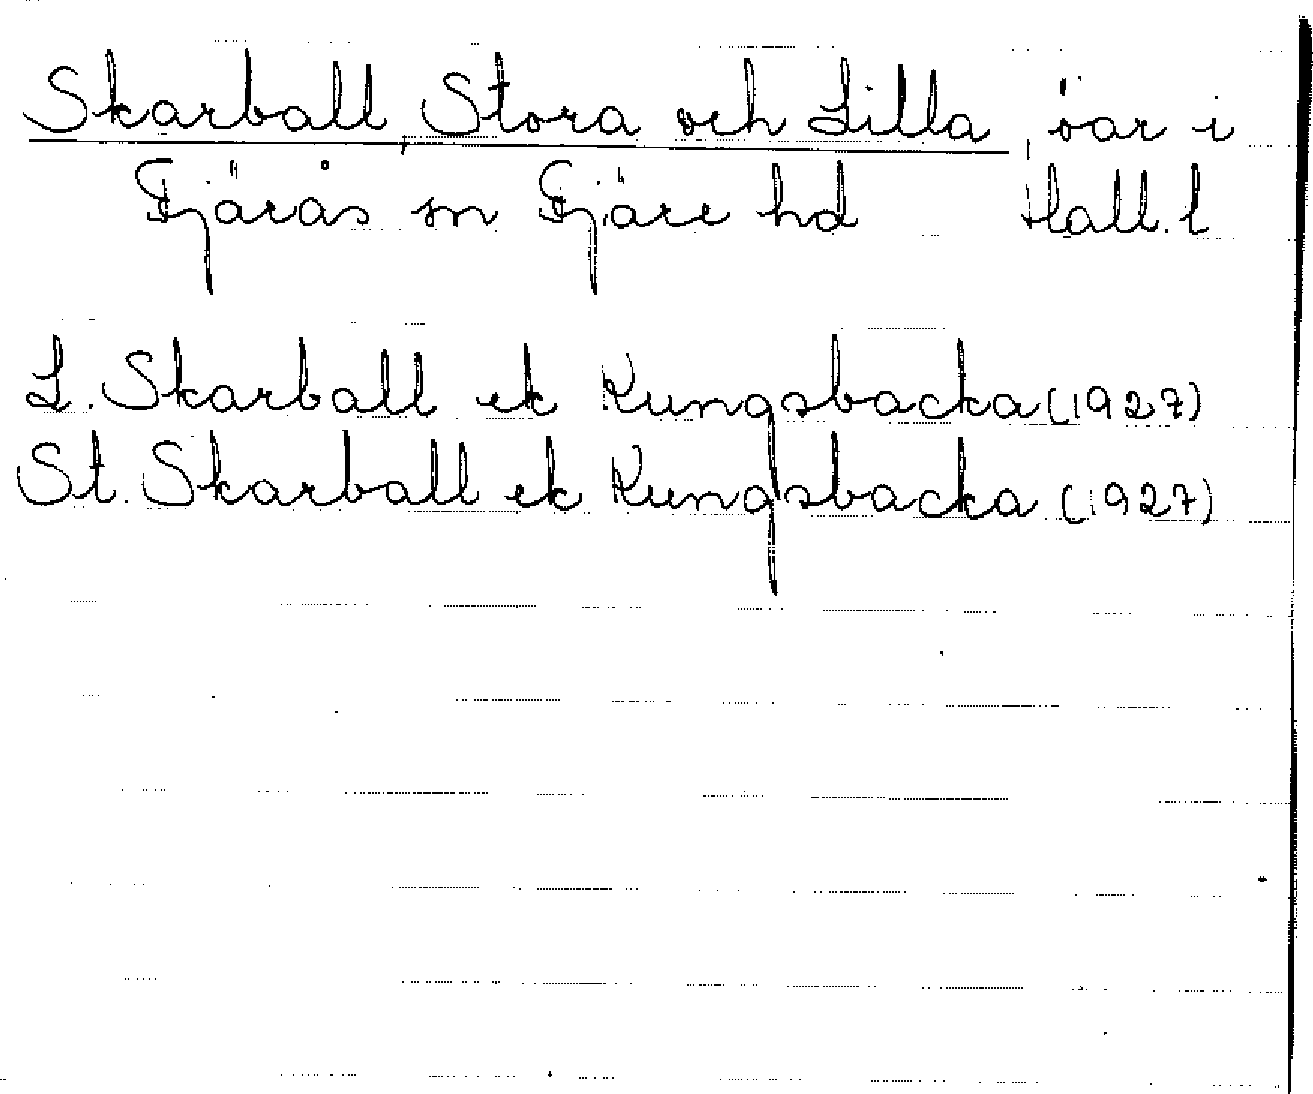 Skarball, Stora och Lilla, öar i
Fjärås sn Fjäre hd Hall. l
L. Skarball ek Kungsbacka (1927)
St. Skarball ek Kungsbacka (1927)